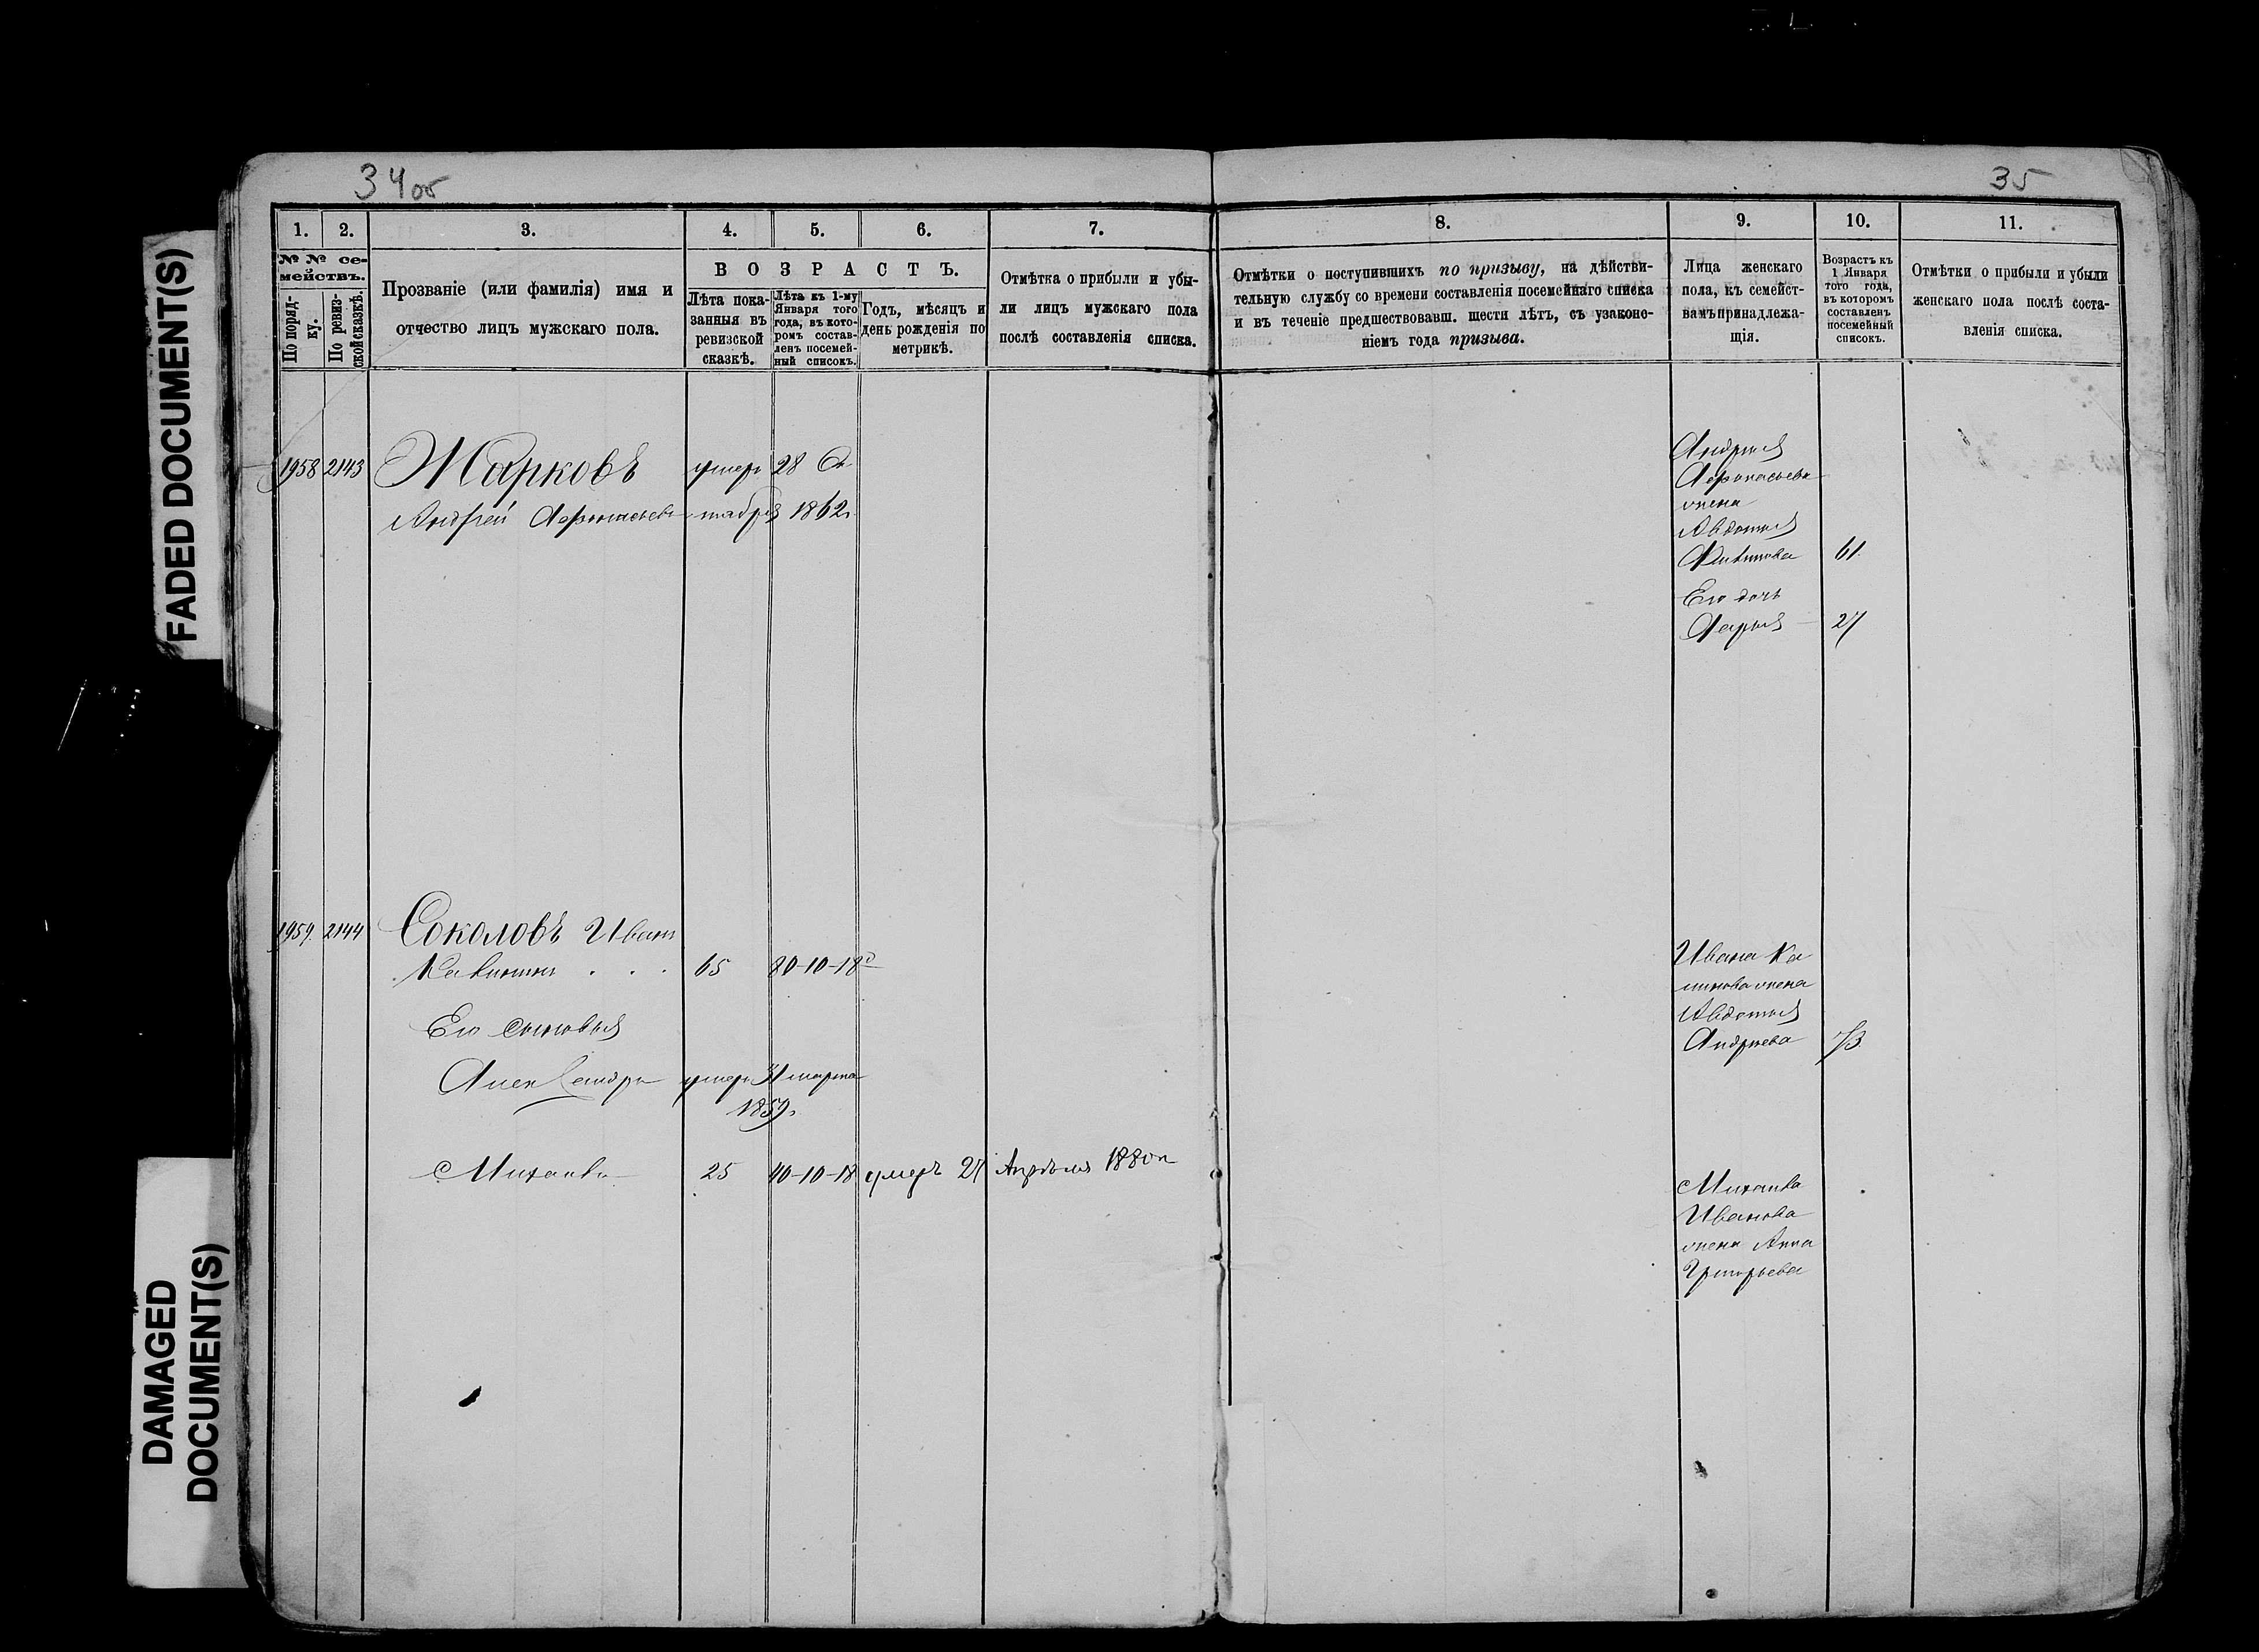 34об
35
FADED DOCUMENT(S)
DAMAGED
DOCUMENT(S)
1. 2. 3. 4. 5. 6. 7.
№ № се-
мействъ.
По поряд-
ку.
По ревиз-
ской сказкѣ.
Прозваніе (или фамилія) имя и
отчество лицъ мужскаго пола.
ВОЗРАСТЪ.
Лѣта пока-
занныя въ
ревизской
сказкѣ.
Лѣта къ 1-му
Января того
года, въ кото-
ромъ состав-
ленъ посемей-
ный списокъ.
Годъ, мѣсяцъ и
день рожденія по
метрикѣ.
Отмѣтка о прибыли и убы-
ли лицъ мужскаго пола
послѣ составленія списка.
1958 2143 Жарковъ умеръ 28 Ок
Андрей Афонасьевъ тября 1862г.
1959. 2144 Соколовъ Иванъ
. . . 65 80-10-18
Его сыновья
Александръ умеръ 31 марта
1859.
Михаилъ 25 40-10-18 умеръ 27 Апрѣля 1880г
8. 9. 10. 11.
Отмѣтки о поступившихъ по призыву, на дѣйстви-
тельную службу со времени составленія посемейнаго списка
и въ теченіе предшествовавш. шести лѣтъ, съ узаконе-
ніемъ года призыва.
Лица женскаго
пола, къ семейст-
вамъ принадлежа-
щія.
Возрастъ къ
1 Января
того года,
въ которомъ
составленъ
посемейный
списокъ.
Отмѣтки о прибыли и убыли
женскаго пола послѣ соста-
вленія списка.
Андрея
Афонасьева
жена
Авдотья
61
Его дочь
Дарья 27
Ивана Ка
линова жена
Авдотья
Андреева 73
Михаила
Иванова
жена Анна
Григорьева